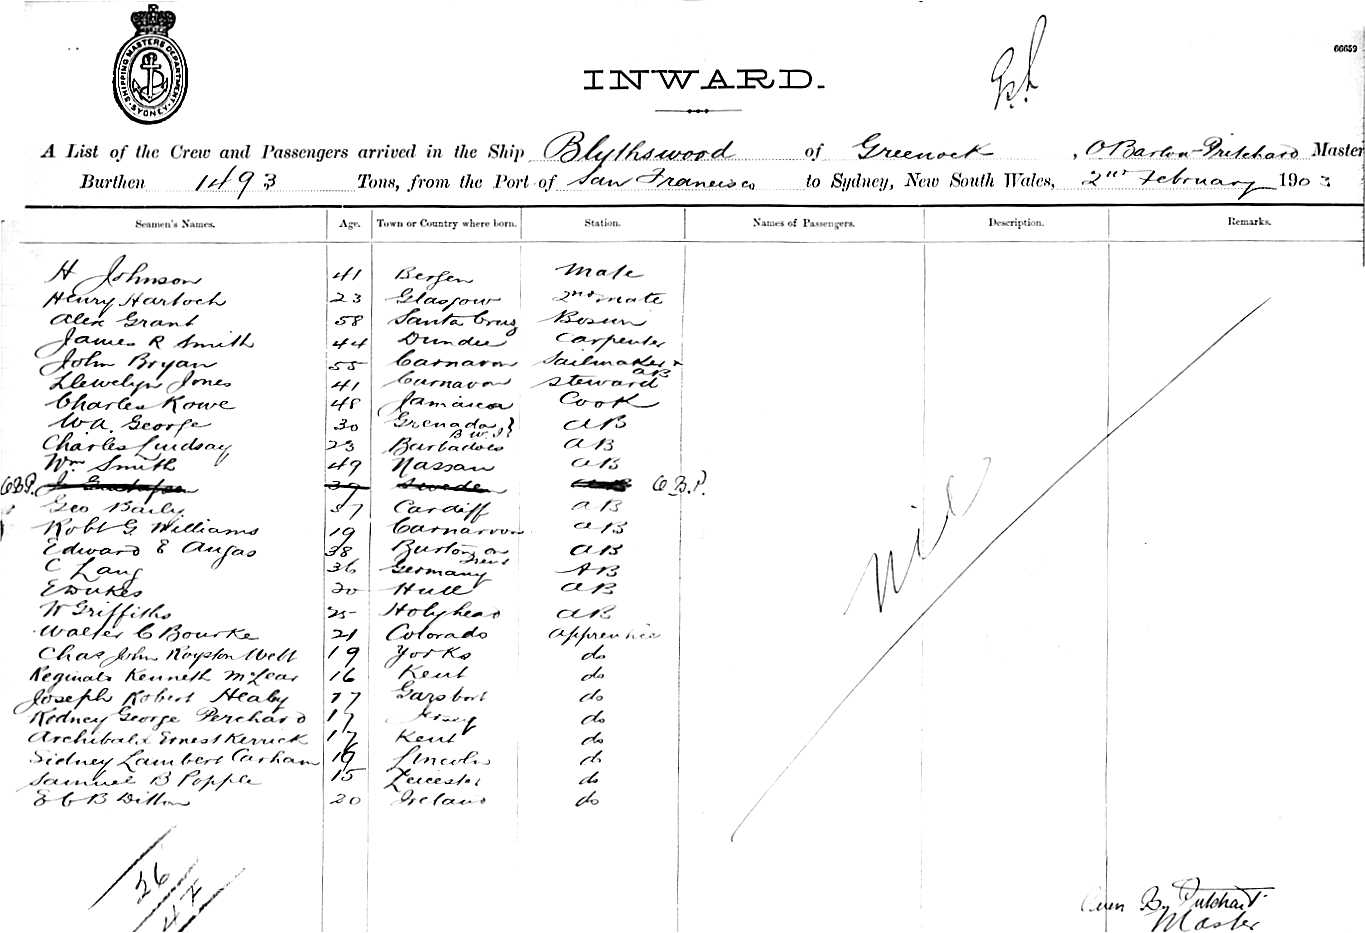 SHIPPING MASTERS DEPARTMENT SYDNEY
66659
INWARD.
A List of the Crew and Passengers arrived in the Ship Blythswood of Greenock, O Barlow-Pritchard Master
Burthen 1493 Tons, from the Port of San Francisco to Sydney, New South Wales, 2nd February 1903
Seamen's Names. Age. Town or Country where born. Station. Names of Passengers. Description. Remarks.
H Johnson 41 Bergen Mate
Henry Hartoch 23 Glasgow 2nd mate
Alex Grant 58 Santa Cruz Bosun
James R Smith 44 Dundee Carpenter
John Bryan 55 Carnarvon Sailmaker + AB
Llewelyn Jones 41 Carnavon Steward
Charles Rowe 48 Jamaica Cook
W.A. George 30 Grenada, B.W.I AB
Charles Lindsay 23 Barbadoes AB
Wm Smith 49 Nassau AB
O.B.P. J Gustafson 39 Sweden AB O.B.P.
Geo Baily 37 Cardiff AB
Robt G Williams 19 Carnarvon AB
Edward E Angas 38 Burton on Trent AB
C Lang 36 Germany AB
E Dukes 30 Hull AB
W Griffiths 25 Holyhead AB
Walter C Bourke 21 Colorado apprentice
Chas John Royston Webb 19 Yorks do
Reginald Kenneth McLear 16 Kent do
Joseph Robert Healy 17 do
Rodney George Perchard 17 Jersey do
Archibald Ernest Kerrick 17 Kent do
Sidney Lambert Carham 19 Lincoln do
Samuel B Popple 15 Leicester do
E C B Dillon 20 Ireland do
Nil
26
Owen B. Pritchard
Master